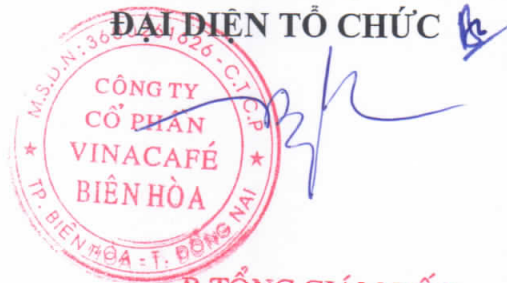 ĐẠI DIỆN TỔ CHỨC
M.S.D.N: 36
26 - C.T.C.P
CÔNG TY
CỔ PHẦN
VINACAFÉ
BIÊN HÒA
TP. BIÊN HÒA - T. ĐỒNG NAI